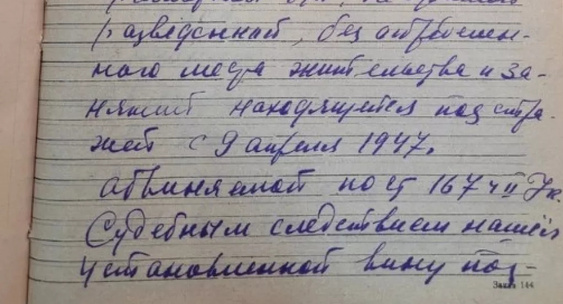 разведенный, без определен-
ного места жительства и за-
нятий находящейся под стра-
жей с 9 апреля 1947.
обвиняемой по ст 167 ч II Ук.
Судебным следствием нашёл
установленной вину под-
Заказ 144